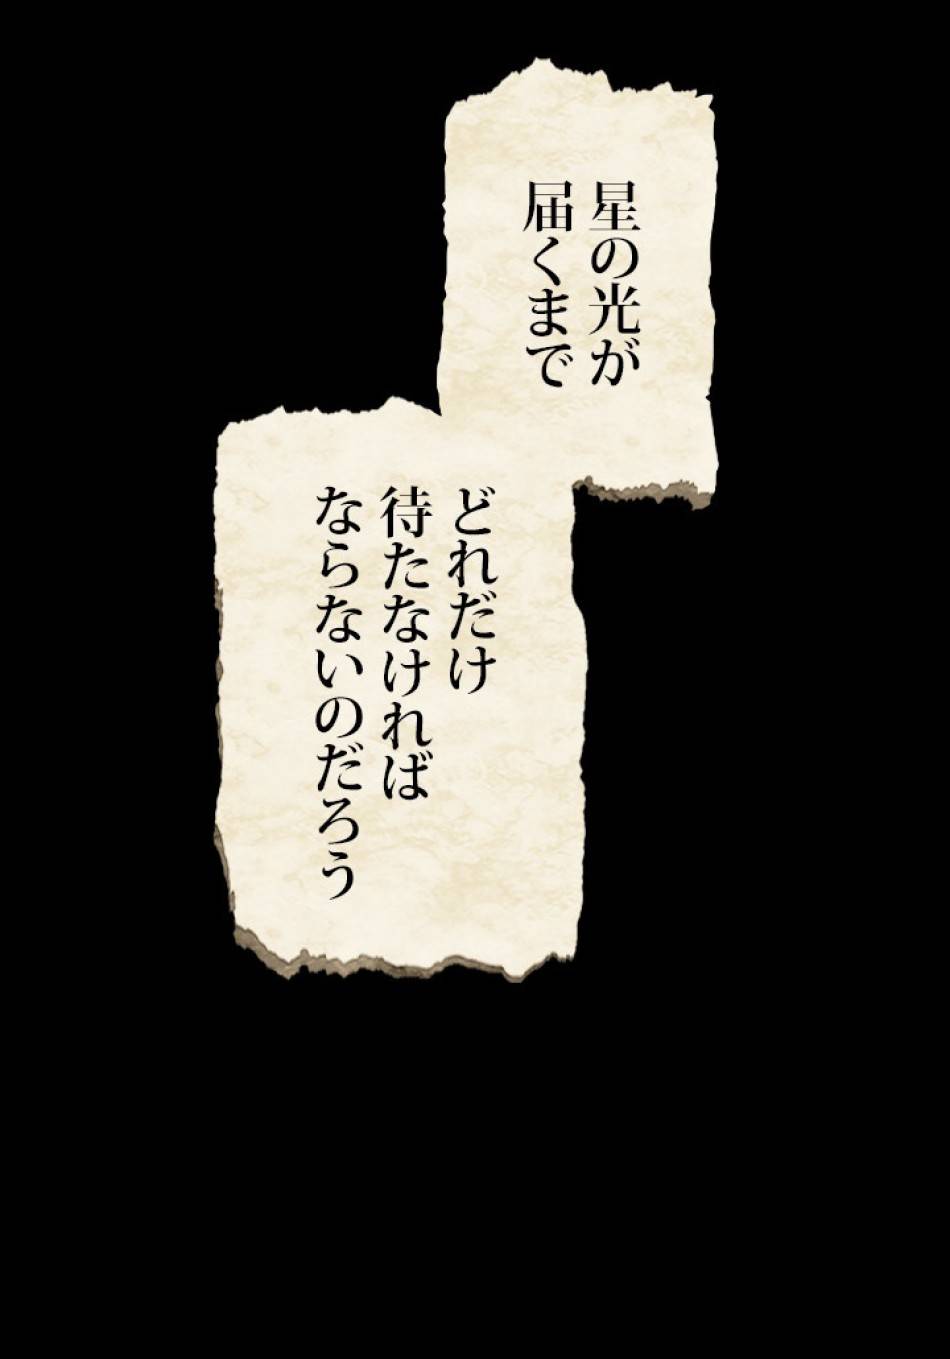 星の光が
届くまで
どれだけ
待たなければ
ならないのだろう